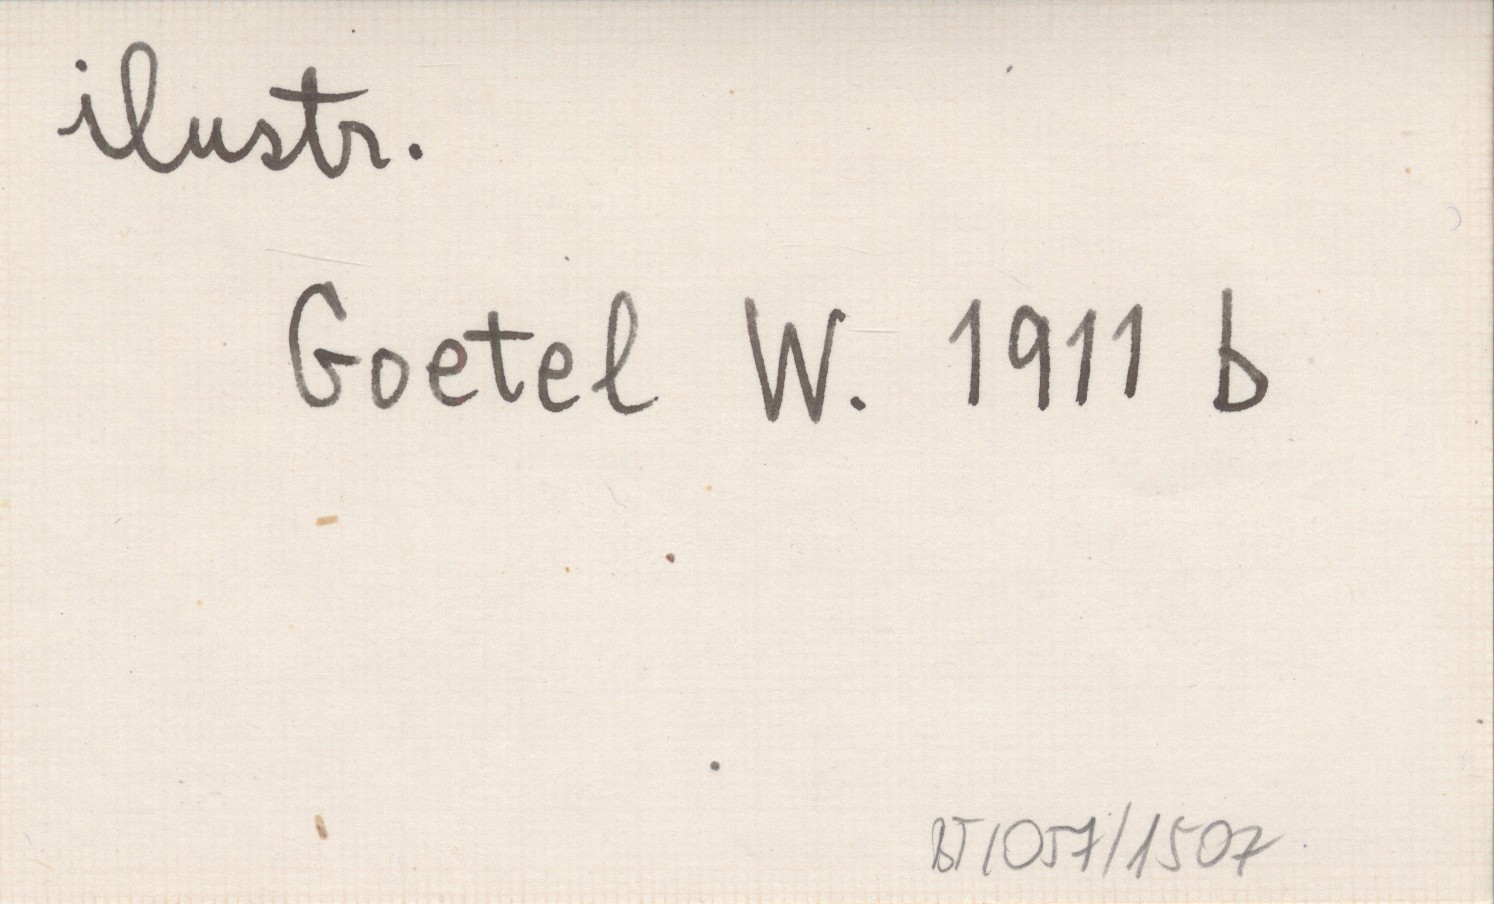 ilustr.
Goetel W. 1911 b
BT/057/1507